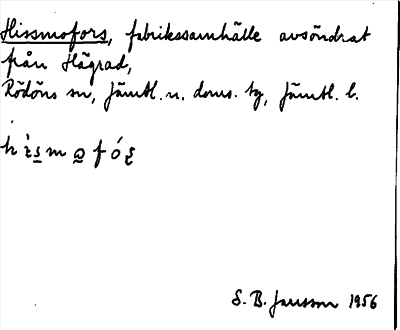 Hissmofors, fabrikssamhälle avsöndrat
från Hägrad,
Rödöns sn, Jämtl. n. doms. tg, Jämtl. l.
S. B. Jansson 1956